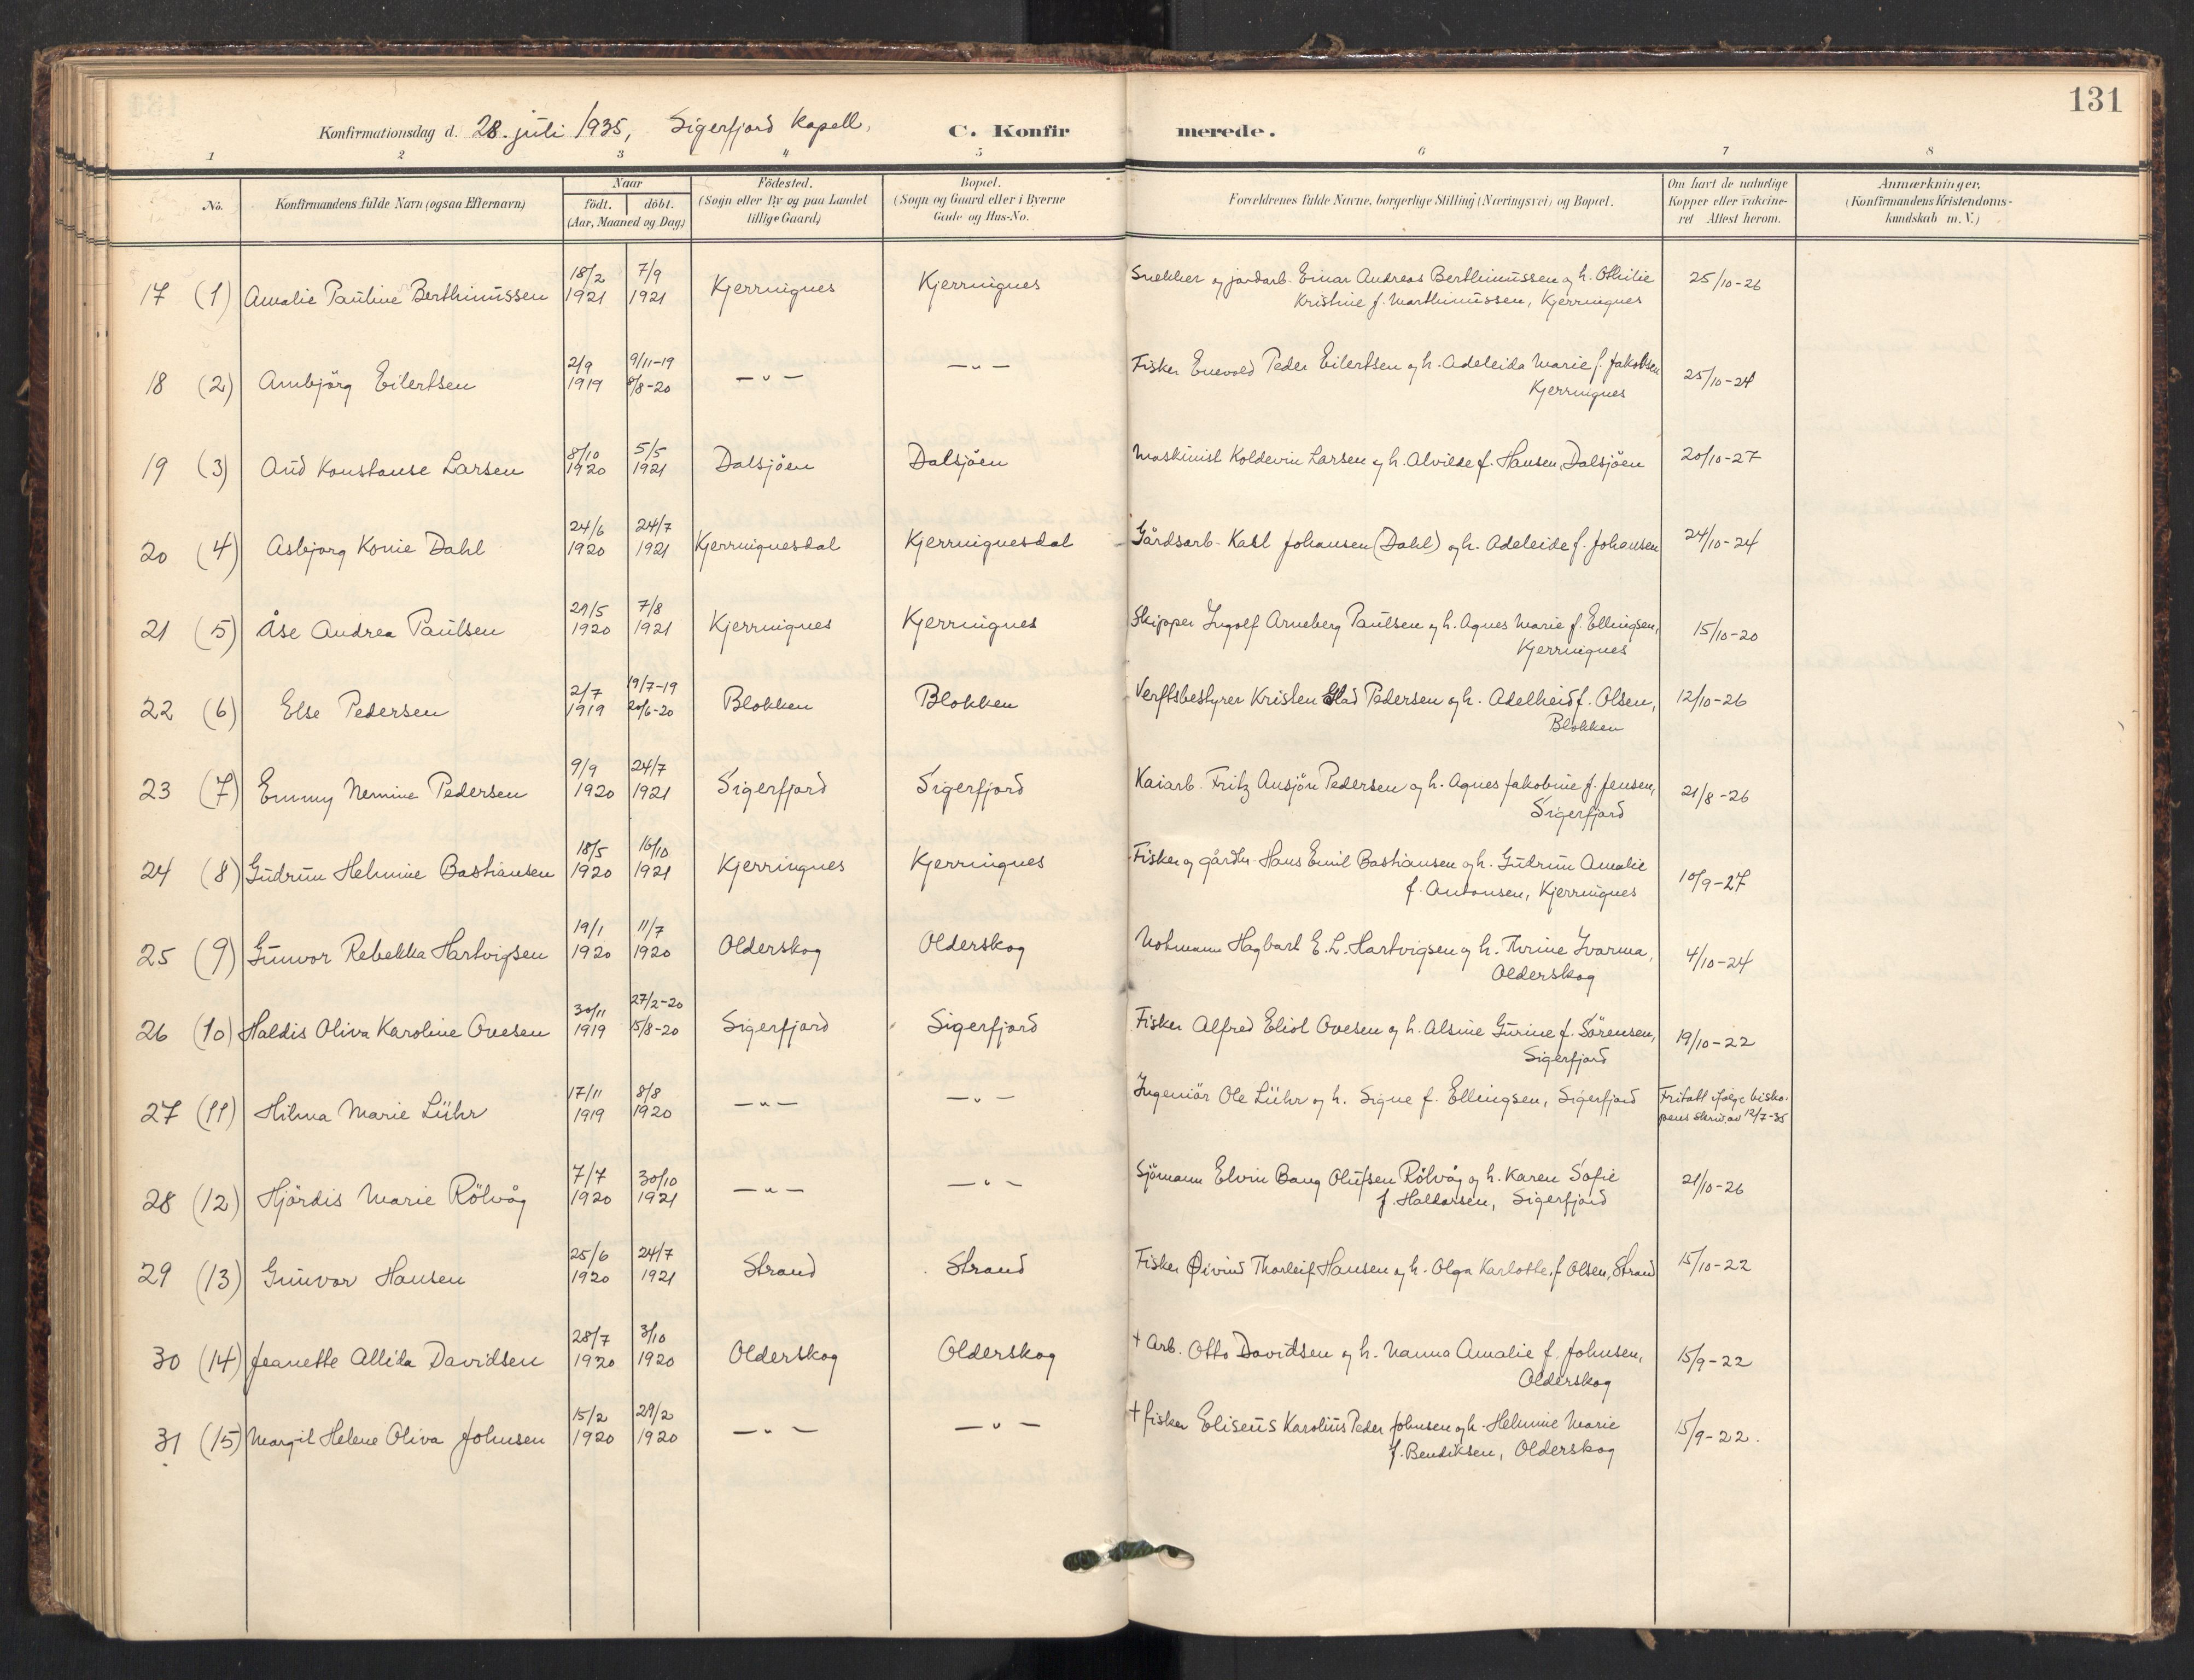 131
Konfirmationsdag d. 28. juli 1935, Sigerfjord Kapell, C. Konfirmerede.
1 2 3 4 5 6 7 8
No. Konfirmandens fulde Navn (ogsaa Efternavn) Naar födt. döbt. (Aar, Maaned og Dag) Födested. (Sogn eller By og paa Landet tillige Gaard) Bopæl. (Sogn og Gaard eller i Byerne Gade og Hus-No. Forældrenes fulde Navne, borgerlige Stilling (Næringsvei) og Bopæl. Om havt de naturlige Kopper eller vakcineret Attest herom. Anmærkninger. (Konfirmandens Kristendomskundskab m. V.)
17 (1) Amalie Pauline Berthinussen 18/2 1921 7/9 1921 Kjerringnes Kjerringnes Snekker og jordarb. Einar Andreas Berthinussen og h. Othilie Kristine f. Marthinussen, Kjerringnes 25/10-26
18 (2) Arnbjörg Eilertsen 2/9 1919 9/11-19 8/8-20 — " — — " — Fisker Enevold Peder Eilertsen og h. Adeleida Marie f. Jakobsen Kjerringnes 25/10-24
19 (3) Aud Konstanse Larsen 8/10 1920 5/5 1921 Dalsjöen Dalsjöen Maskinist Koldevin Larsen og h. Alvilde f. Hansen, Dalsjöen 20/10-27
20 (4) Asbjorg Konie Dahl 24/6 1920 24/7 1921 Kjerringnesdal Kjerringnesdal Gårdsarb. Karl Johansen (Dahl) og h. Adeleide f. Johansen 24/10-24
21 (5) Åse Andrea Paulsen 29/5 1920 7/8 1921 Kjerringnes Kjerringnes Skipper Ingolf Arneberg Paulsen og h. Agnes Marie f. Ellingsen, Kjerringnes 15/10-20
22 (6) Else Pedersen 2/7 1919 19/7-19 20/6-20 Blokken Blokken Verftsbestyrer Kristen Glad Pedersen og h. Adelheid f. Olsen, Blokken 12/10-26
23 (7) Emmy Nemine Pedersen 9/9 1920 24/7 1921 Sigerfjord Sigerfjord Kaiarb. Fritz Ansjön Pedersen og h. Agnes Jakobine f. Jensen, Sigerfjord 21/8-26
24 (8) Gudrun Helmine Bastiansen 18/5 1920 16/10 1921 Kjerringnes Kjerringnes Fisker og gårdbr. Hans Emil Bastiansen og h. Gudrun Amalie f. Antonsen, Kjerringnes 10/9-27
25 (9) Gunvor Rebekka Hartvigsen 19/1 1920 11/7 1920 Olderskog Olderskog Notmann Hagbart E. L. Hartvigsen og h. Thrine Ivarma, Olderskog 4/10-24
26 (10) Haldis Oliva Karoline Ovesen 30/11 1919 27/2-20 15/8-20 Sigerfjord Sigerfjord Fisker Alfred Eliot Ovesen og h. Alsine Gurine f. Sörensen, Sigerfjord 19/10-22
27 (11) Hilma Marie Lühr 17/11 1919 8/8 1920 — " — — " — Ingeniör Ole Lühr og h. Signe f. Ellingsen, Sigerfjord Fritatt ifølge biskopens skriv. av 12/7-35
28 (12) Hjördis Marie Rölvåg 7/7 1920 30/10 1921 — " — — " — Sjömann Elvin Bang Olufsen Rölvåg og h. Karen Sofie f. Haldorsen, Sigerfjord 21/10-26
29 (13) Gunvor Hansen 25/6 1920 24/7 1921 Strand Strand Fisker Øivind Thorleif Hansen og h. Olga Karlotte f. Olsen, Strand 15/10-22
30 (14) Jeanette Allida Davidsen 28/7 1920 3/10 1920 Olderskog Olderskog † Arb. Otto Davidsen og h. Nanna Amalie f. Johnsen, Olderskog 15/9-22
31 (15) Margit Helene Oliva Johnsen 15/2 1920 29/2 1920 — " — — " — † fisker Eliseus Karolius Peder Johnsen og h. Helmine Marie f. Bendiksen, Olderskog 15/9-22.